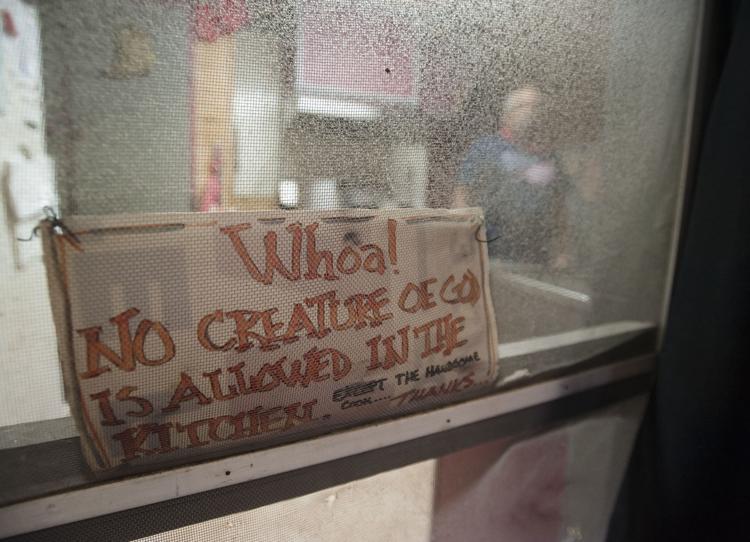 Whoa!
NO CREATURE OF GOD
IS ALLOWED IN THE
KITCHEN.
EXCEPT THE HANDSOME
COOK.... THANKS...